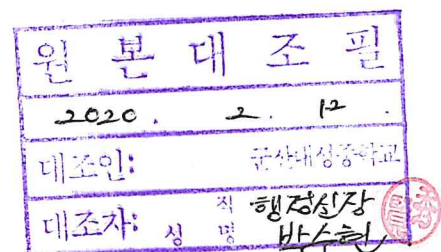 원본대조필
2020. 2. 12.
대조인: 군산대성중학교
대조자: 직 행정실장
성명 박수현